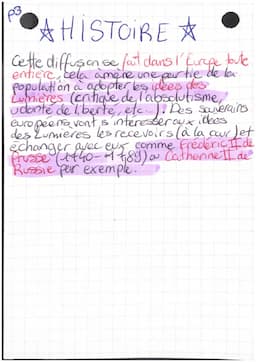 p3
☆ HISTOIRE ☆
Cette diffusion se fait dans l'Europe toute
entière, cela amère une partie de la
population à adopter les idées des
Lumières (critique de l'absolutisme,
volonté de liberté, etc...). Des souverains
européens vont s'intéresser aux idées
des Lumières les recevoirs (à la cour) et
échanger avec eux comme Frédéric II de
Prusse (1740-1789) ou Catherine II de
Russie par exemple.